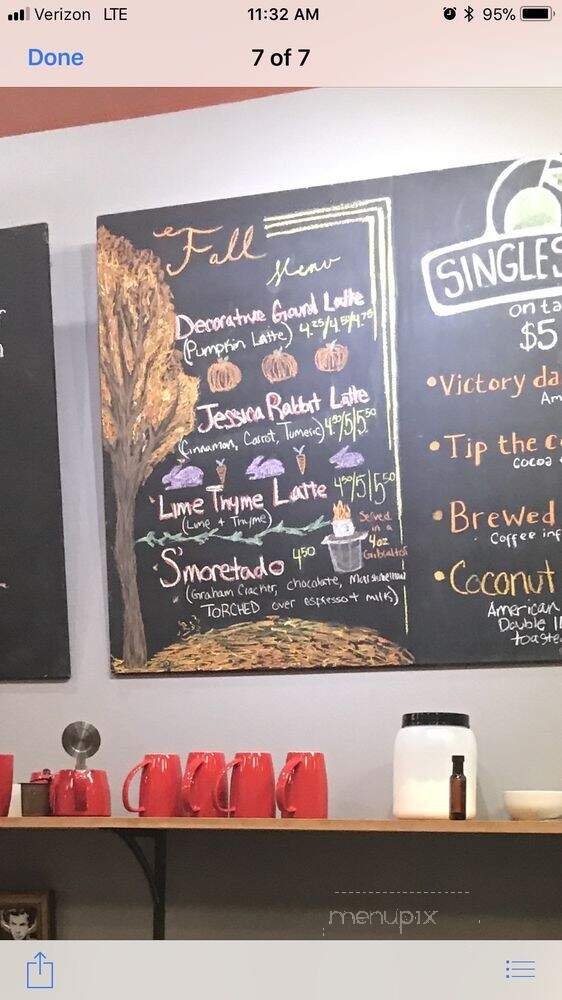 Verizon LTE 11:32 AM 95%
Done 7 of 7
Fall
Menu
Decorative Gourd Latte
(Pumpkin Latte) 4.25/4.50/4.75
Jessica Rabbit Latte
(Cinnamon, Carrot, Tumeric) 4.50/5/5.50
Lime Thyme Latte 4.50/5/5.50
(Lime + Thyme)
S'moretado 4.50
Served
in a
4oz
Gibralter
(Graham Cracker, chocolate, Marshmellow
TORCHED over espresso + milk)
SINGLES
on ta
$5
•Victory da
Am
•Tip the c
cocoa
•Brewed
Coffee inf
•Coconut
American
Double I
toaste
menupix